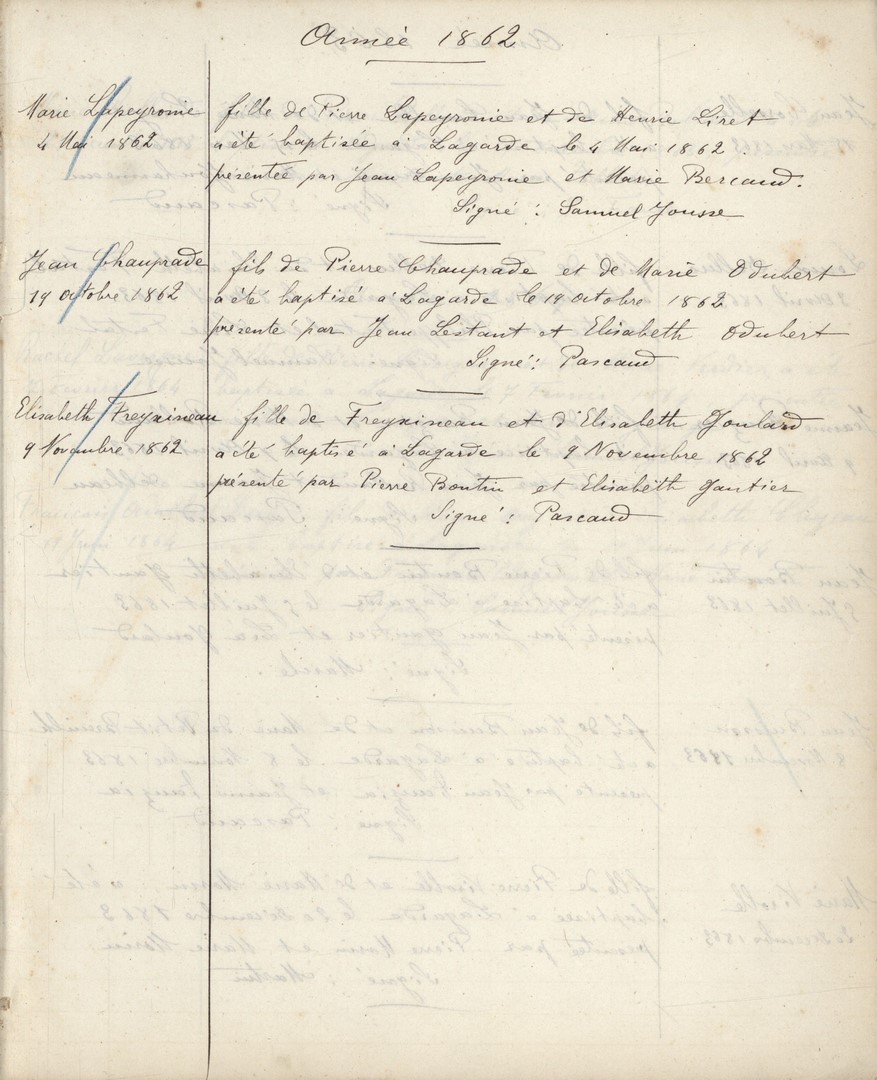 Année 1862
Marie Lapeyronie
4 Mai 1862
fille de Pierre Lapeyronie et de Henrie Liret
a été baptisée à Lagarde le 4 Mai 1862.
présentée par Jean Lapeyronie et Marie Bercaud.
Signé : Samuel Jousse
Jean Chauprade
19 octobre 1862
fils de Pierre Chauprade et de Marie Odubert
a été baptisé à Lagarde le 19 octobre 1862
présenté par Jean Lestant et Elisabeth Odubert
Signé : Pascaud
Elisabeth Freyxineau
9 Novembre 1862
fille de Freyxineau et d'Elisabeth Goulard
a été baptisé à Lagarde le 9 Novembre 1862
présenté par Pierre Boutin et Elisabeth Gautier
Signé : Pascaud